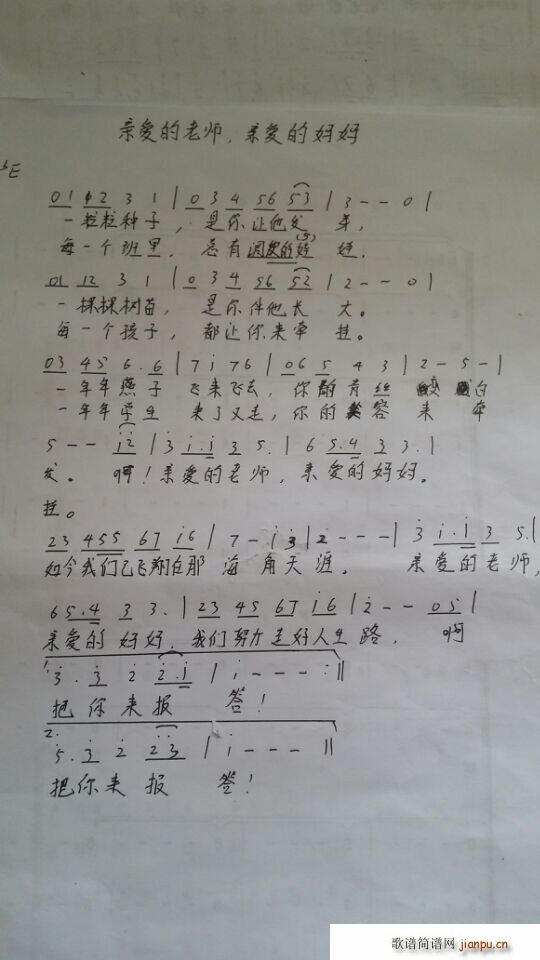 亲爱的老师,亲爱的妈妈
♭E
01 12 3 1 | 0 3 4 56 53 | 3 - - 0 |
一粒粒种子,是你让他发 芽,
每一个班里,总有调皮的娃 娃,
01 12 3 1 | 0 3 4 56 52 | 2 - - 0 |
一棵棵树苗,是你伴他长 大。
每一个孩子,都让你来牵 挂。
03 45 6.6 | 7 i 76 | 06 5 4 3 | 2 - 5 - |
一年年燕子 飞来飞去,你的青丝 白
一年年学生 来了又走,你的笑容 来 牵
5 - - i2 | 3 i.i 3 5. | 6 5.4 3 3. |
发。 啊!亲爱的老师,亲爱的妈妈。
挂。
23 455 67 i6 | 7 - i 3 | 2 - - - | 3 i.i 3 5. |
如今我们已飞翔在那 海角天涯。 亲爱的老师,
65.4 3 3. | 23 45 67 i6 | 2 - - 05 |
亲爱的妈妈,我们努力走好人生路, 啊
1.
3. 3 2 2.i | i - - - :||
把你来报 答!
2.
5. 3 2 23 | i - - - ||
把你来报 答!
歌谱简谱网 jianpu.cn